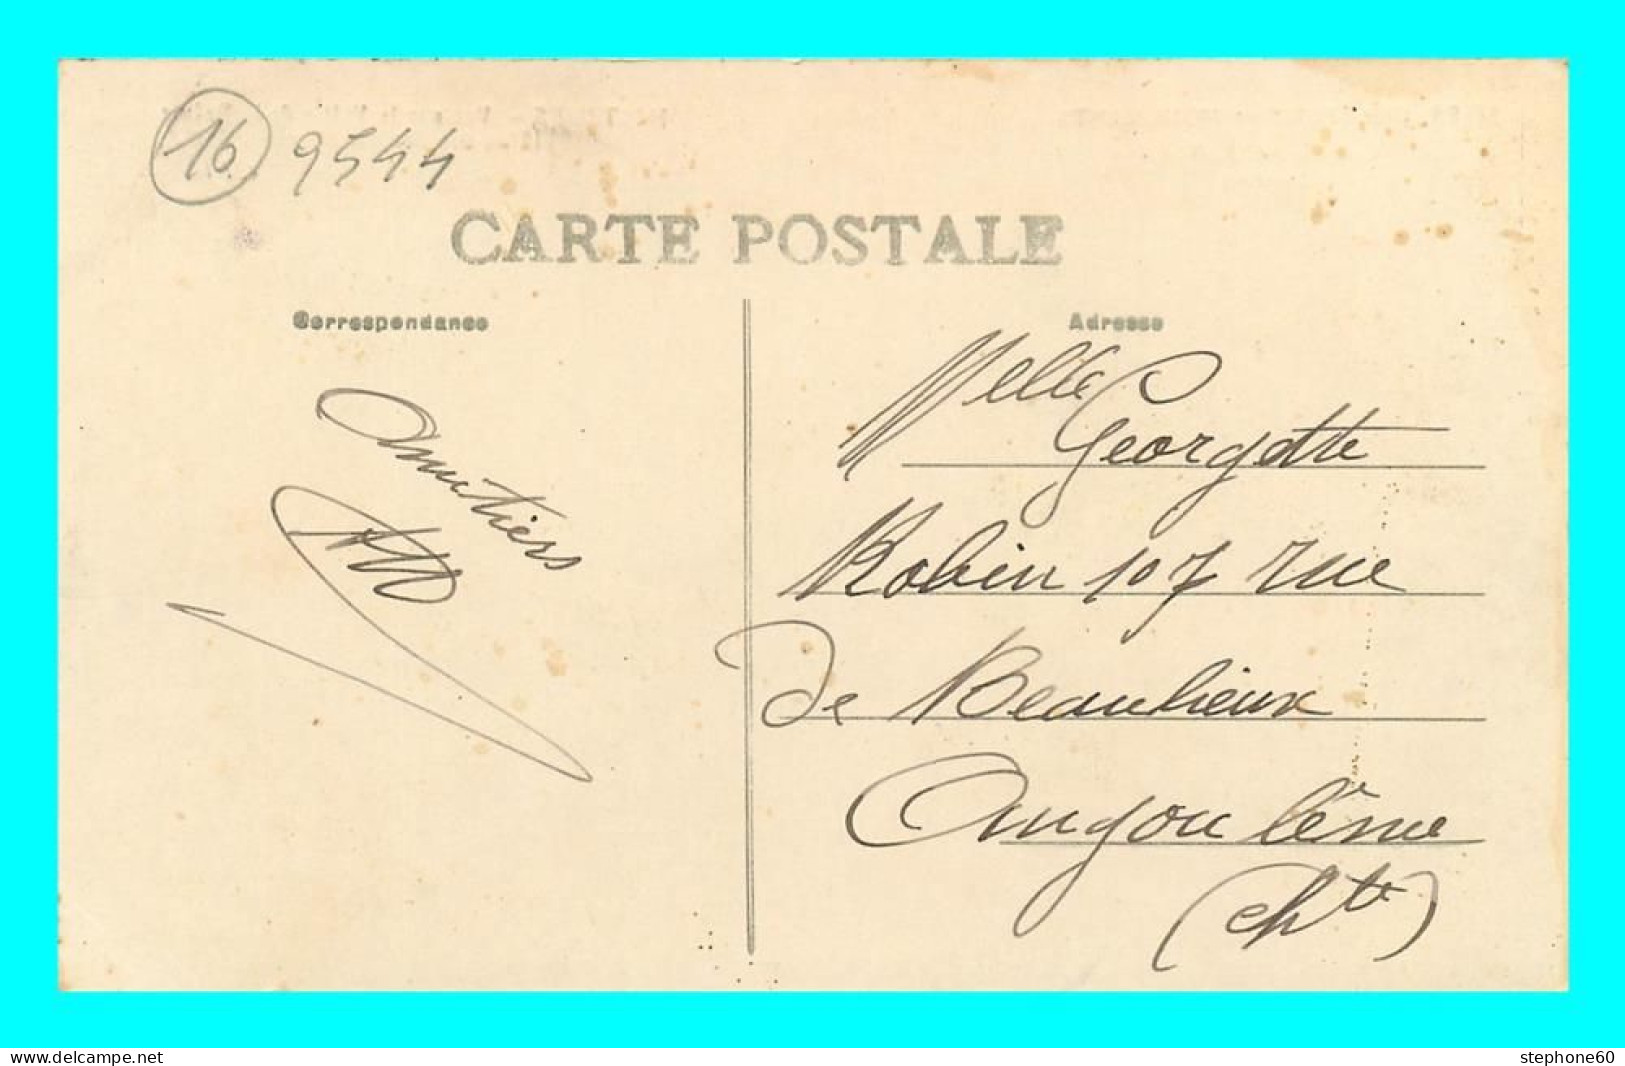 16 9544
CARTE POSTALE
Correspondance
Adresse
Amitiers
Melle
Georgette
Robin 107 rue
de Beaulieux
Angoulême
(chte)
www.delcampe.net
stephone60